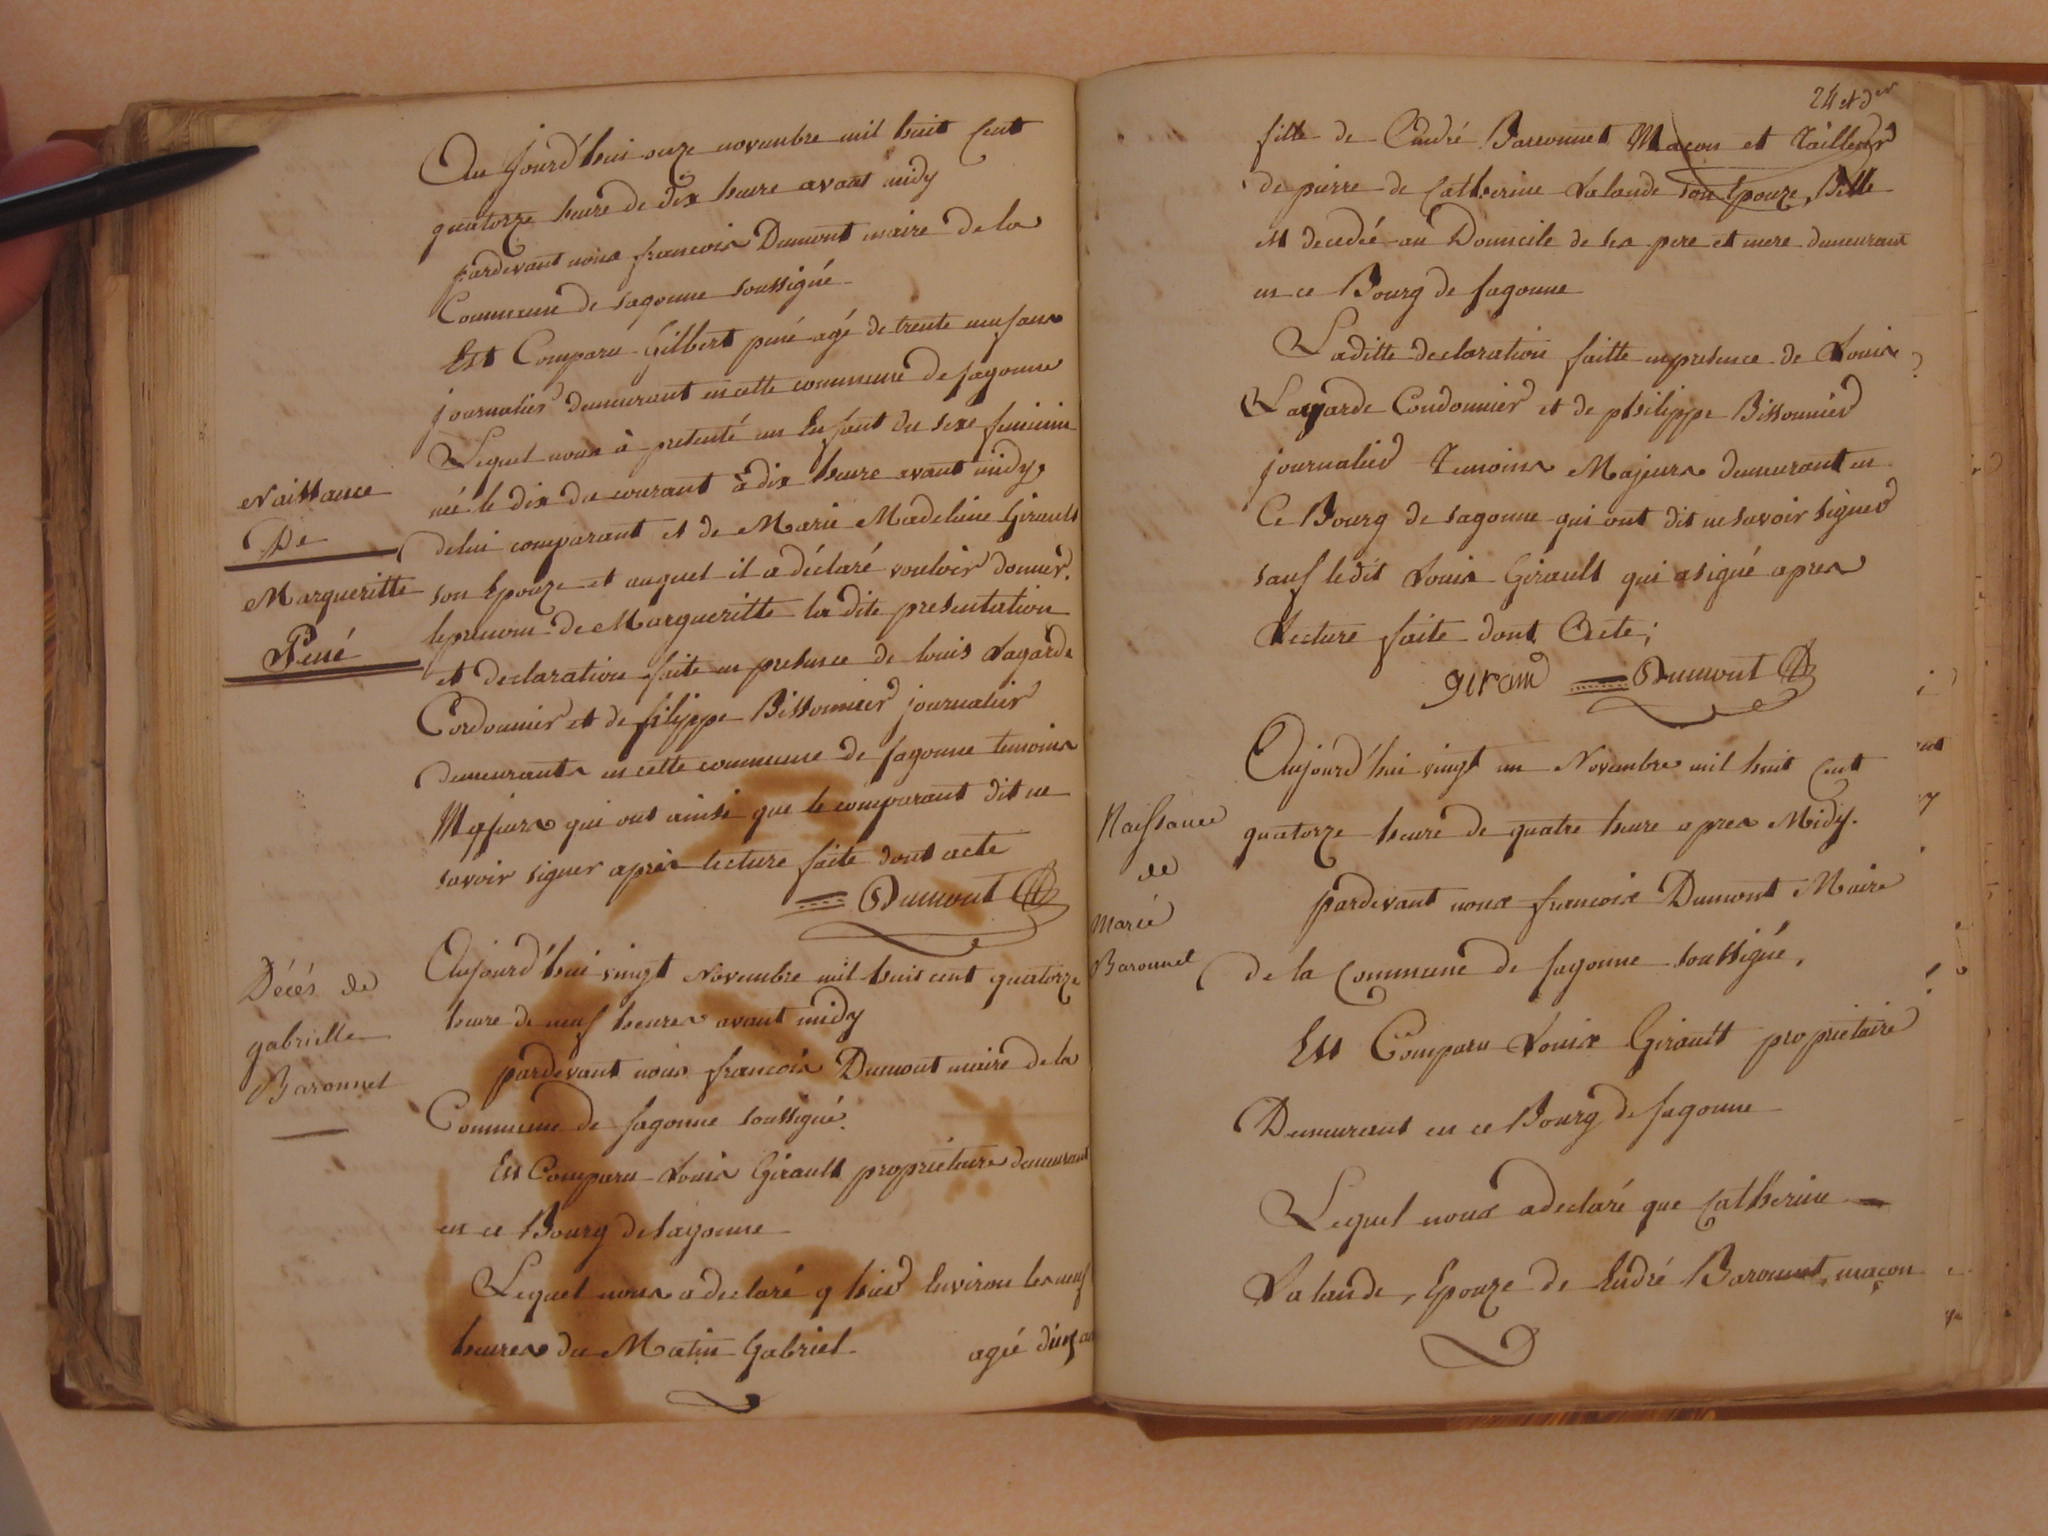 Au jourd'hui onze novembre mil huit Cent
quatorze heure de dix heure avant midy
pardevant nous francois Dumont maire de la
Commune de sagonne soussigné
Est Comparu Gilbert pené agé de trente neuf ans
journalier demeurant en cette commune de sagonne
Lequel nous à presenté un Enfant du sexe feminin
née le dix du courant à dix heure avant midy
Naissance
De
Margueritte
Pené
de lui comparant et de Marie Madeleine Girault
son Epouze et auquel il a déclaré vouloir donner
le prenom de Margueritte la dite presentation
et declaration faite en presence de louis Lagarde
Cordonnier et de filippe Bissonnier journalier
demeurants en cette commune de sagonne temoins
Majeurs qui ont ainsi que le comparant dit ne
savoir signer après lecture faite dont acte
Dumont
Décés de
gabrielle
Baronnet
Aujourd'hui vingt Novembre mil huit cent quatorze
heure de neuf heures avant midy
pardevant nous francois Dumont maire de la
Commune de sagonne soussigné
Est Comparu Louis Girault proprietaire demeurant
en ce Bourg de sagonne
Lequel nous a declaré q hier Environ les neuf
heures du Matin Gabriel agée d'un an
24 et der
fille de André Baronnet Maçon et Tailleur
de pierre de Catherine Lalande son Epouze, Elle
est decedée au Domicile de ses pere et mere demeurant
en ce Bourg de sagonne
Laditte declaration faitte en presence de Louis
Lagarde Condonnier et de philippe Bissonnier
journalier Temoins Majeurs demeurant en
Ce Bourg de sagonne qui ont dit ne savoir signer
sauf ledit Louis Girault qui a signé apres
Lecture faite dont Acte;
giraud Dumont
Naissance
de
Marie
Baronnet
Aujourd'hui vingt un Novembre mil huit Cent
quatorze heure de quatre heure apres Midy.
pardevant nous francois Dumont Maire
de la Commune de sagonne soussigné,
Est Comparu Louis Girault proprietaire
Demeurant en ce Bourg de sagonne
Lequel nous a declaré que Catherine
Lalande, Epouze de André Baronnet, maçon